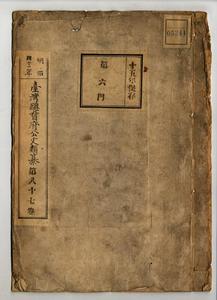 05241
十五年保存
第六門
明治
四十二年
臺灣總督府公文類纂 第八十七卷